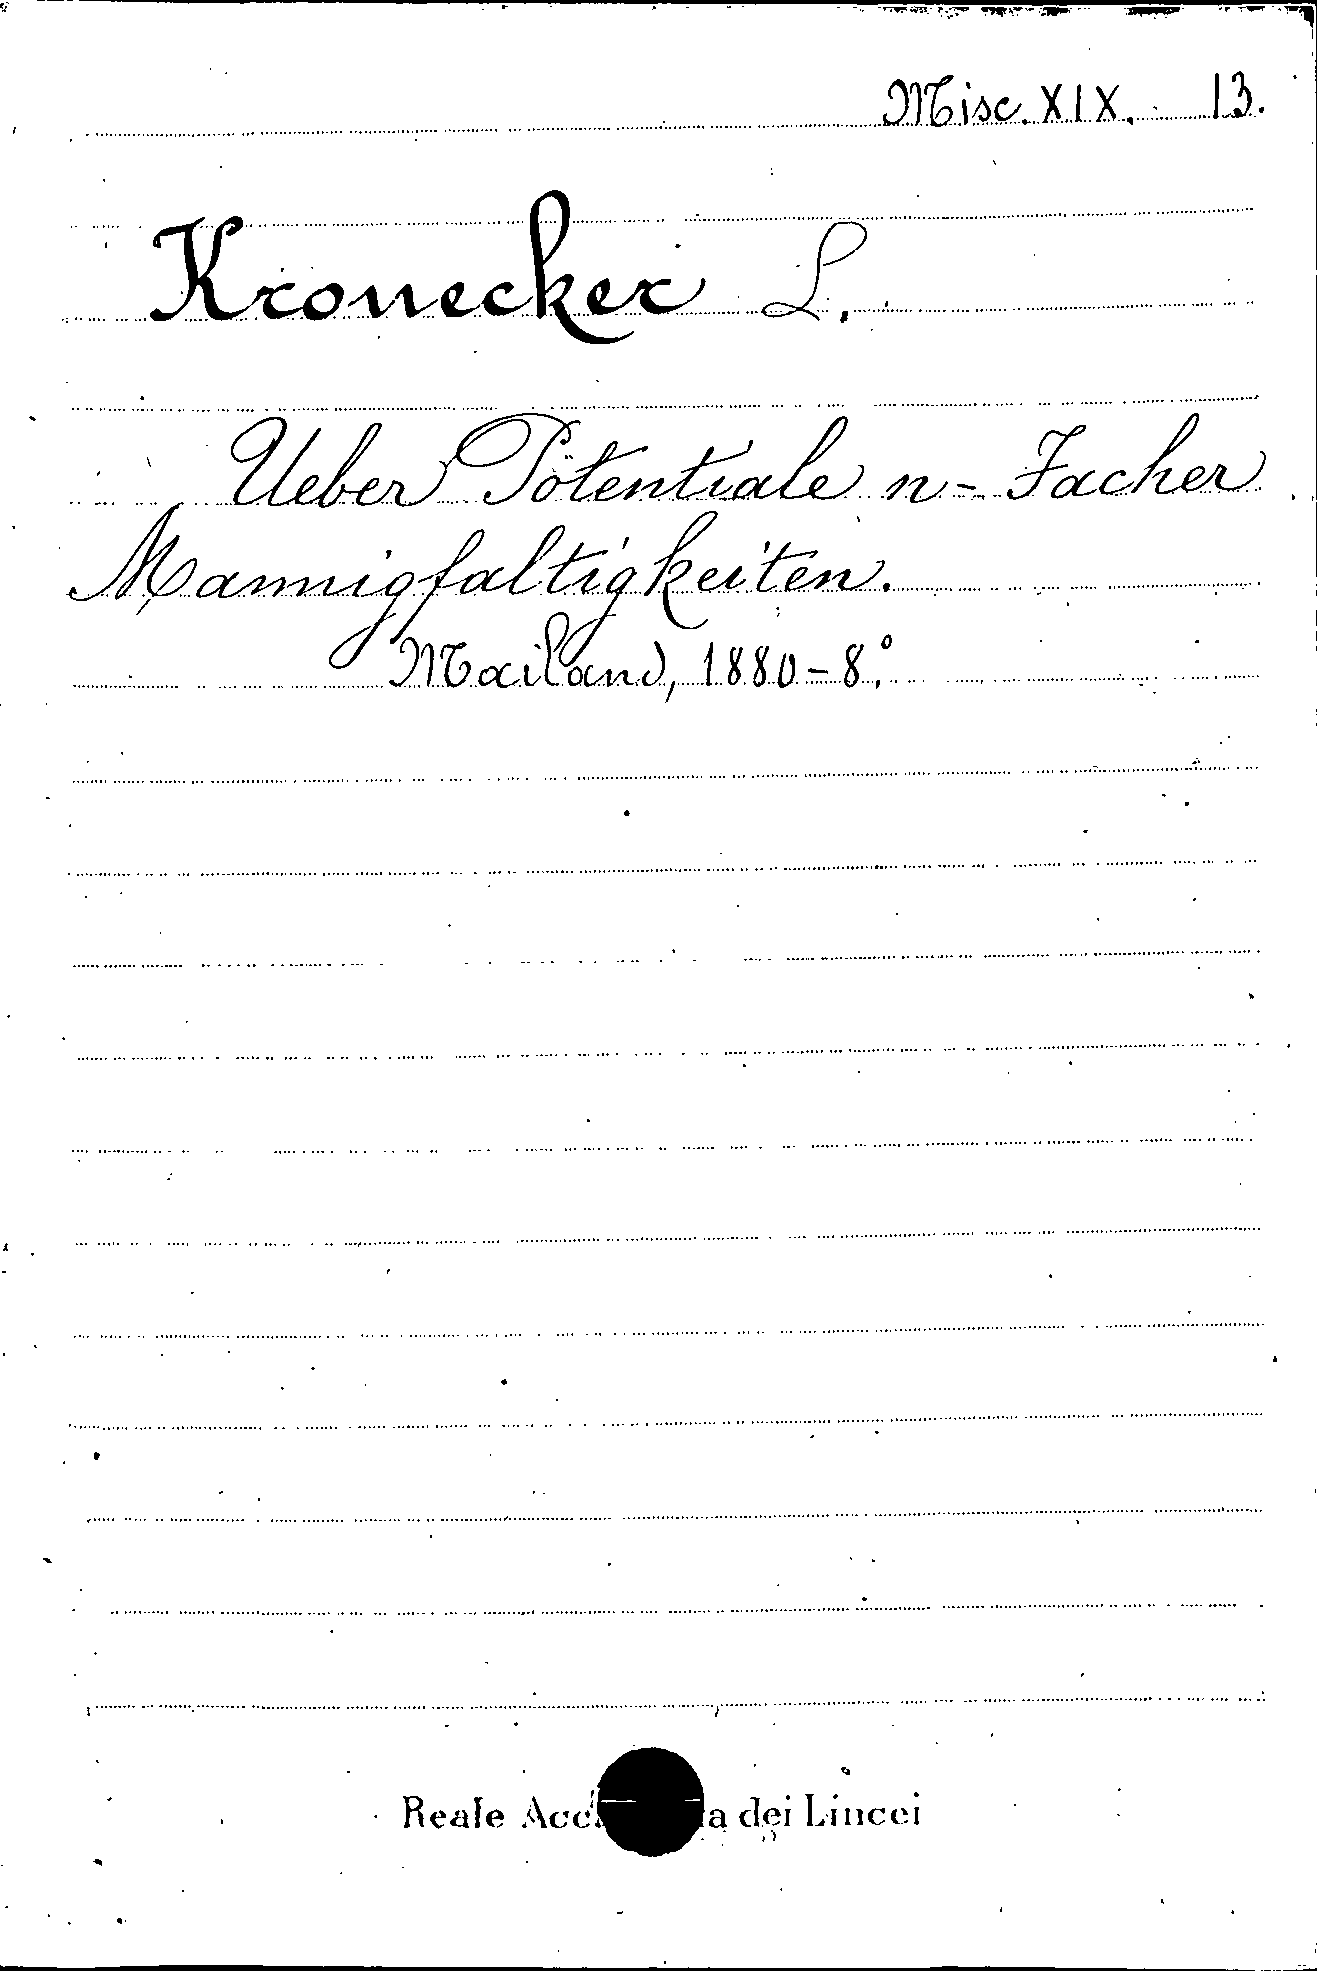 Misc. XIX. 13.
Kronecker L.
Ueber Potentiale n-Facher
Mannigfaltigkeiten.
Mailand, 1880-8.°
Reale Acc a dei Lincei